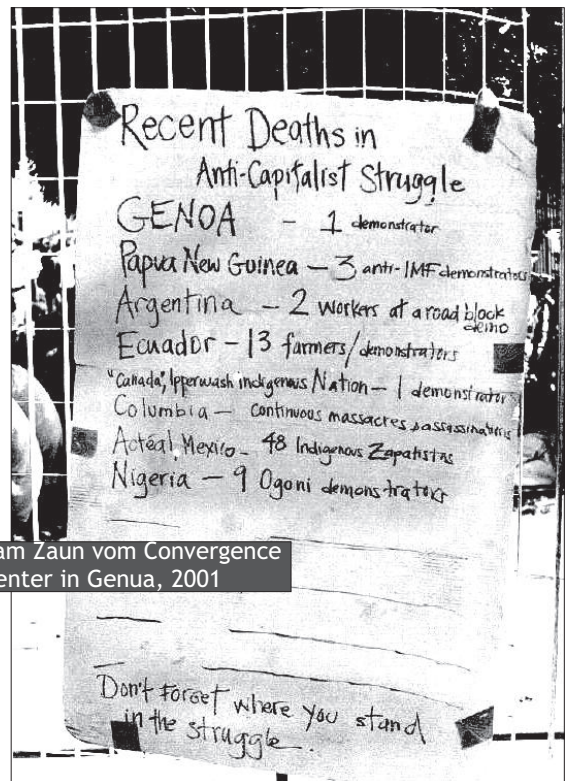 Recent Deaths in
Anti-Capitalist Struggle
GENOA - 1 demonstrator
Papua New Guinea - 3 anti-IMF demonstrators
Argentina - 2 workers at a road block
demo
Ecuador - 13 farmers/demonstrators
"Canada", Ipperwash indigenous Nation - 1 demonstrator
Columbia - continuous massacres & assassinations
Actéal, Mexico - 48 Indigenous Zapatistas
Nigeria - 9 Ogoni demonstrators
am Zaun vom Convergence
enter in Genua, 2001
Don't Forget where you stand
in the struggle.